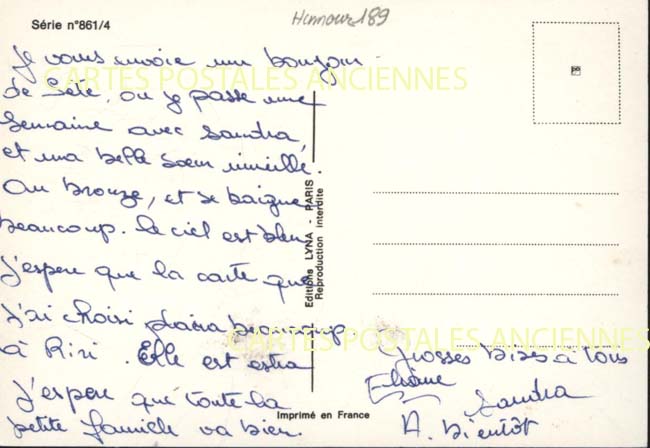 Série n°861/4
Humour 189
Je vous envoie un bonjour
de Sète, ou je passe une
semaine avec Sandra,
et ma belle soeur
On bronze, et se baigne
beaucoup. le ciel est bleu
j'espere que la carte que
j'ai choisi plaira beaucoup.
à Riri. Elle est extra
j'espere que toute la
petite famille va bien.
Grosses bises à tous
Eliane
Sandra
A. Bientôt
Editions LYNA - PARIS
Reproduction interdite
Imprimé en France
CARTES POSTALES ANCIENNES
CARTES POSTALES ANCIENNES